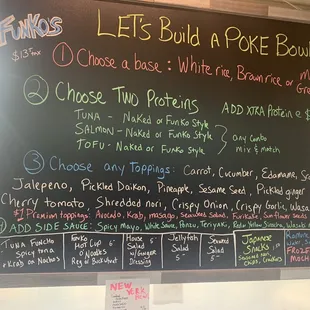 FUNKO'S
LET'S BUILD A POKE BOWL
$13
① Choose a base : White rice, Brown rice or
② Choose Two Proteins
ADD XTRA Protein
TUNA - Naked or Funko Style
SALMON - Naked or Funko Style
TOFU - Naked or Funko Style
any combo
mix & match
③ Choose any Toppings: Carrot, Cucumber, Edamame,
Jalapeno, Pickled Daikon, Pineapple, Sesame Seed, Pickled ginger
Cherry tomato, Shredded nori, Crispy Onion, Crispy Garlic,
Premium toppings: Avocado, Krab, masago, Seaweed Salad, Furikake, Sunflower Seeds
ADD SIDE SAUCE: Spicy Mayo, White Sauce, Ponzu, Teriyaki,
TUNA FUNCHO
Spicy tuna
+ Krab on Nachos
Funko
Hot Cup
House
Salad
w/Ginger
Dressing
Jellyfish
Salad
5
Seaweed
Salad
5
Japanese
Snacks
Seaweed
Chips, Crackers
FROZEN
MOCHI
NEW